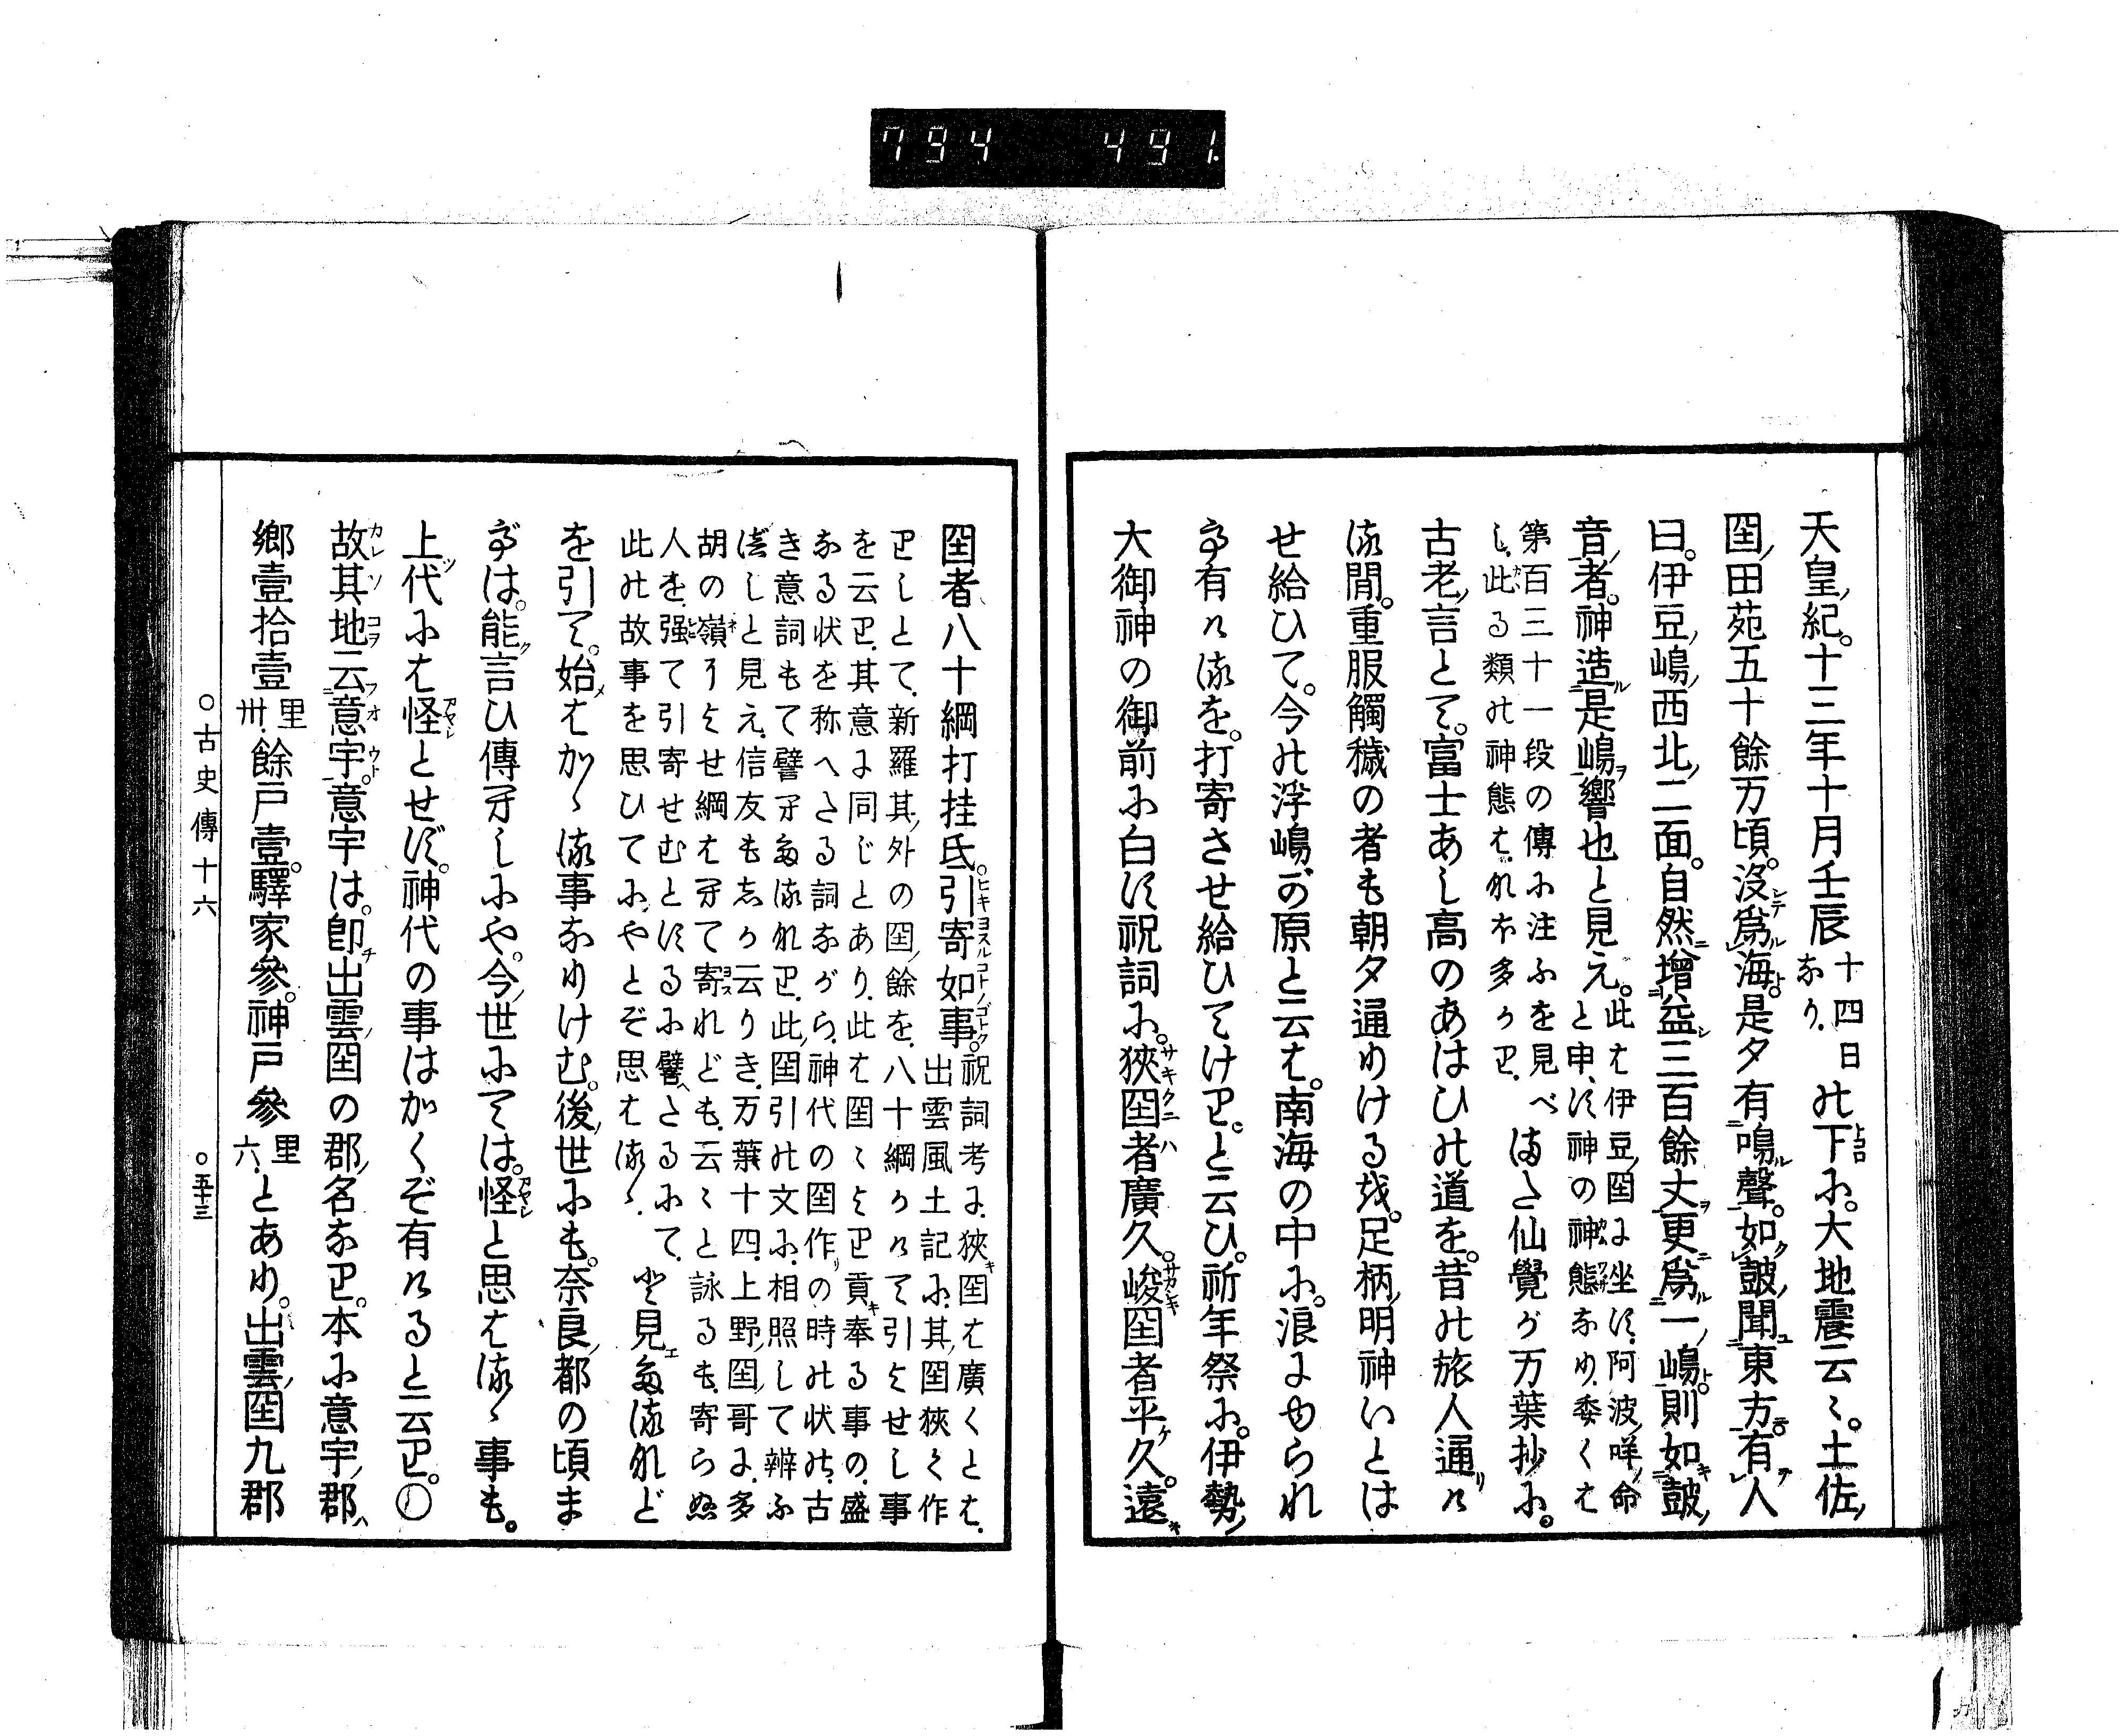 794 491.
天皇ノ紀。十三年十月壬辰十四日なり。の下に。大地震云々。土佐ノ
圀ノ田苑五十餘万頃。沒爲海。是夕有鳴聲。如皷ノ聞東方。有人
曰。伊豆ノ嶋ノ西北ノ二面。自然増益三百餘丈更爲一ノ嶋。則如皷ノ
音ノ者。神造是嶋響也と見え。此は伊豆ノ圀に坐す。阿波ノ咩ノ命
と申す神の神態なり。委くは
第百三十一段の傳に注ふを見べ
し。此る類の神態は。れほ多かり。
また仙覺が万葉抄に。
古老ノ言とて。富士あし高のあはひの道を。昔の旅人通りける
間。重服觸穢の者も朝夕通りけるを。足柄ノ明神いとは
せ給ひて。今の浮嶋が原と云は。南海の中に。浪にゆられ
て有けるを。打寄させ給ひてけり。と云ひ。祈年祭に。伊勢ノ
大御神の御前に白す祝詞に。狹圀者廣久。峻圀者平久。遠
圀者八十綱打挂氐。引寄如事。祝詞考に。狹圀は廣くとは。
出雲風土記に。其ノ圀狹く作
りしとて。新羅其ノ外の圀ノ餘を。八十綱かけて引よせし事
を云り。其意に同じとあり。此は圀々より貢奉る事の。盛
なる状を称へたる詞ながら。神代の圀作りの時の状の。古
き意詞もて譬りたるなり。此ノ圀引の文に。相照して辨ふ
べしと見え。信友も志か云りき。万葉十四。上野ノ圀ノ哥に。多
胡の嶺によせ綱はへて寄れども。云々と詠るも。寄らぬ
人を。强て引寄せむとするに譬へたるにて。
此の故事を思ひてにやとぞ思はるゝ。
と見えたれど
を引て。始はかゝる事なりけむ。後ノ世にも。奈良ノ都の頃ま
では。能言ひ傳へしにや。今ノ世にては。怪と思はるゝ事も。
上代には怪とせず。神代の事はかくぞ有けると云り。○
故其地云意宇。意宇は。卽出雲ノ圀の郡ノ名なり。本に意宇ノ郡ハ
鄕壹拾壹里卅。餘戸壹。驛家參。神戸參里六。とあり。出雲ノ圀九郡
○古史傳十六 ○五十三